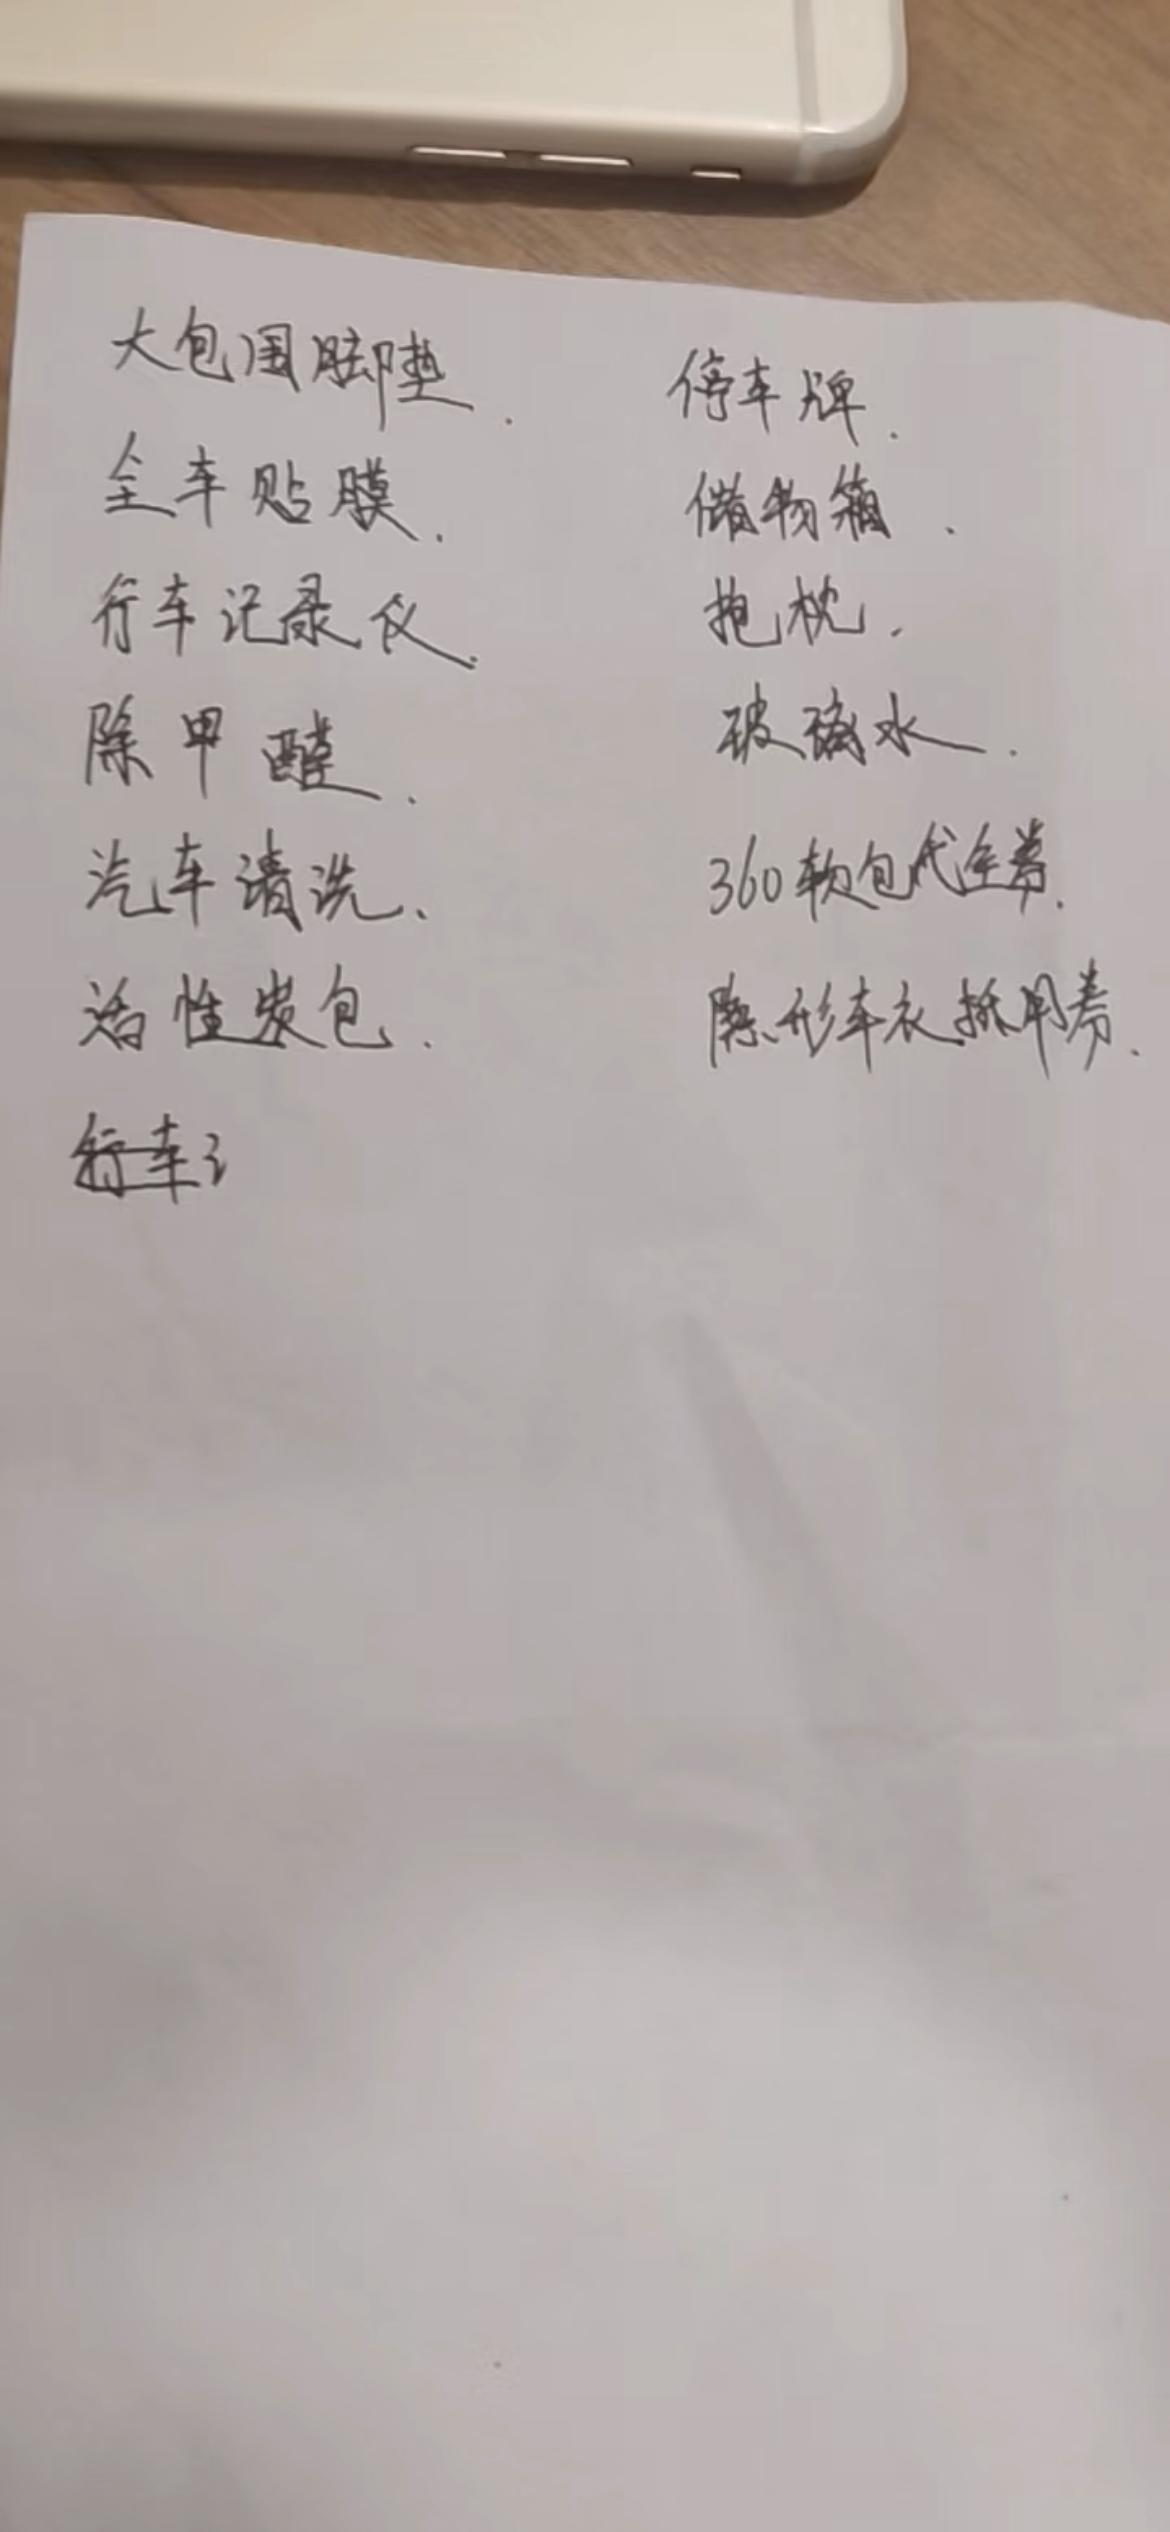 大包围脚垫.
全车贴膜.
行车记录仪.
除甲醛.
汽车清洗.
活性炭包.
行车讠
停车牌.
储物箱.
抱枕.
玻璃水.
360软包代金券.
隐形车衣抵用券.